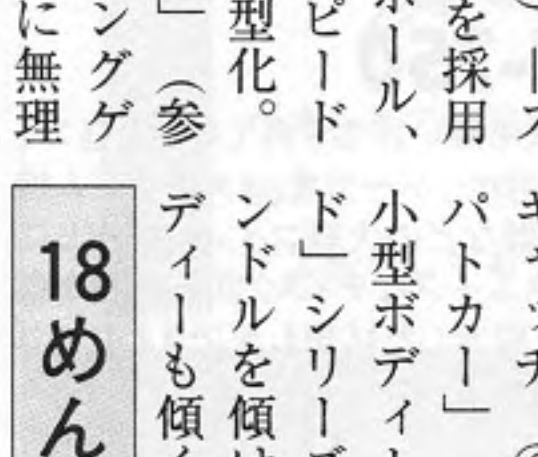 ース
を採用
ール、
ピード
型化。
」（参
ングゲ
に無理
キャッチ
パトカー」
小型ボディ
ド」シリーズ
ンドルを傾け
ディーも傾
18めん